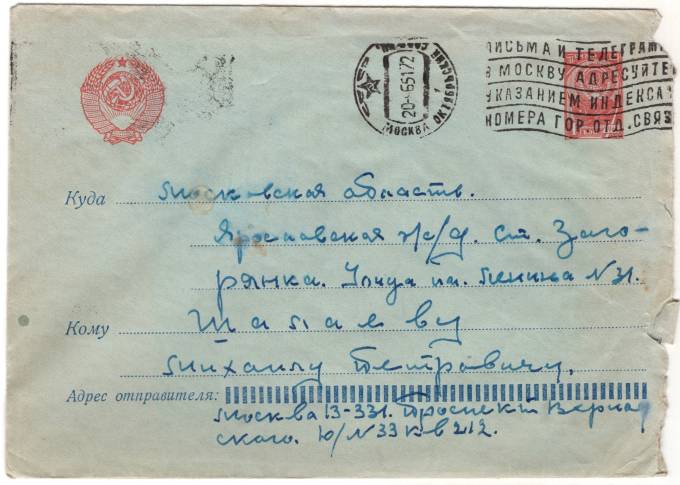 ПИСЬМА И ТЕЛЕГРАМ
В МОСКВУ АДРЕСУЙТЕ
УКАЗАНИЕМ ИНДЕКСА
НОМЕРА ГОР. ОТД. СВЯЗ
МОСКВА
Куда Московская область.
Ярославская ж/д. ст. Заго-
рянка. Улица им. Ленина N31.
Кому
Михаилу Петровичу.
Адрес отправителя:
Москва В-331. Проспект Вернад
ского. 10/N33 кв 212.